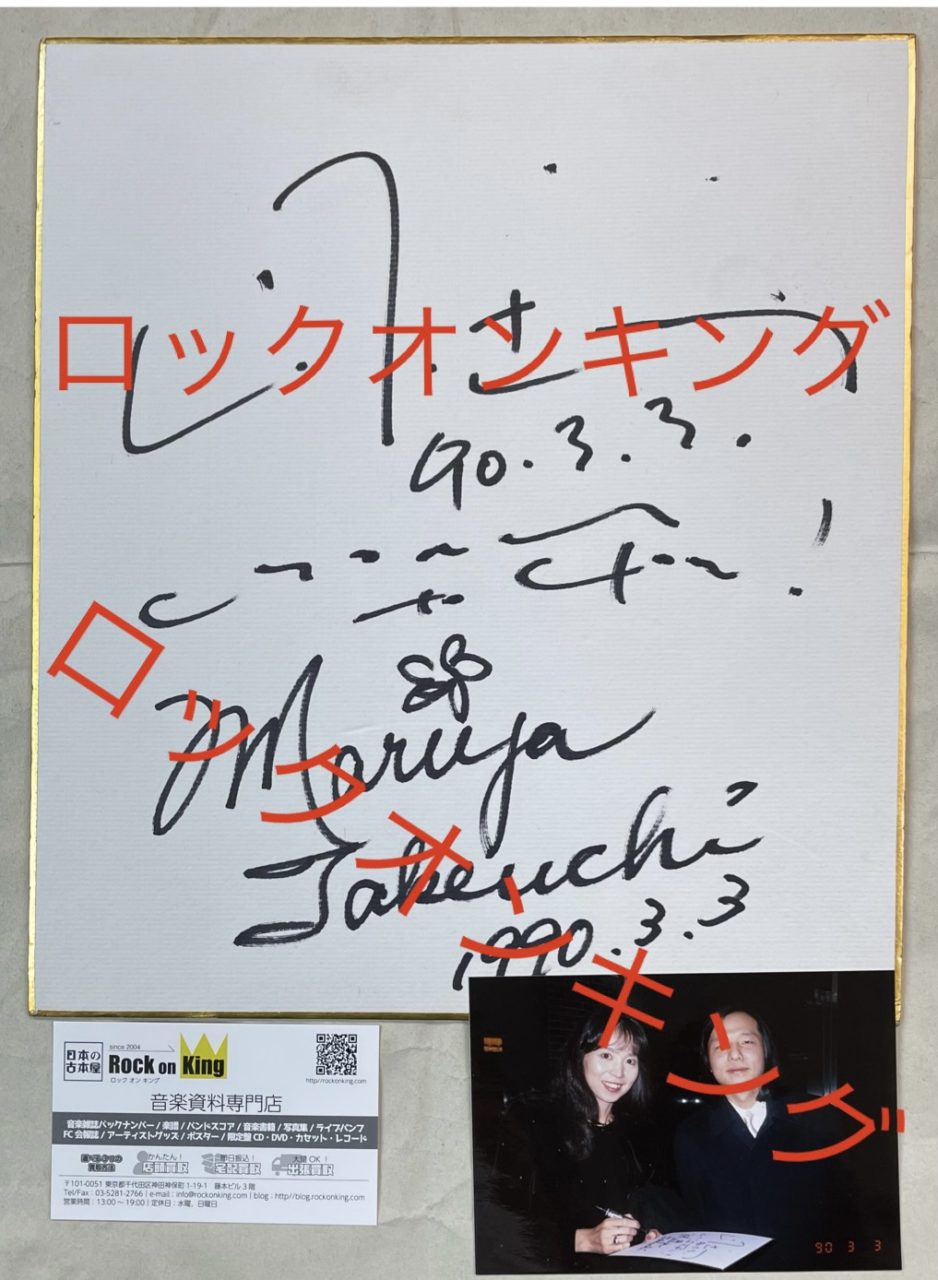 ロックオンキング
90.3.3.
ロックオンキング
Mariya
Takeuchi
1990.3.3
日本の古本屋
since 2004
Rock on King
ロック オン キング
http://rockonking.com
音楽資料専門店
音楽雑誌バックナンバー / 楽譜 / バンドスコア / 音楽書籍 / 写真集 / ライブパンフ
FC 会報誌 / アーティストグッズ / ポスター / 限定盤 CD・DVD・カセット・レコード
選べる3つの買取方法
かんたん!
店頭買取
即日振込!
宅配買取
大量 OK!
出張買取
〒101-0051 東京都千代田区神田神保町 1-19-1 藤本ビル3階
Tel/Fax : 03-5281-2766 | e-mail : info@rockonking.com | blog : http://blog.rockonking.com
営業時間 : 13:00 ~ 19:00 | 定休日 : 水曜、日曜日
90 3 3